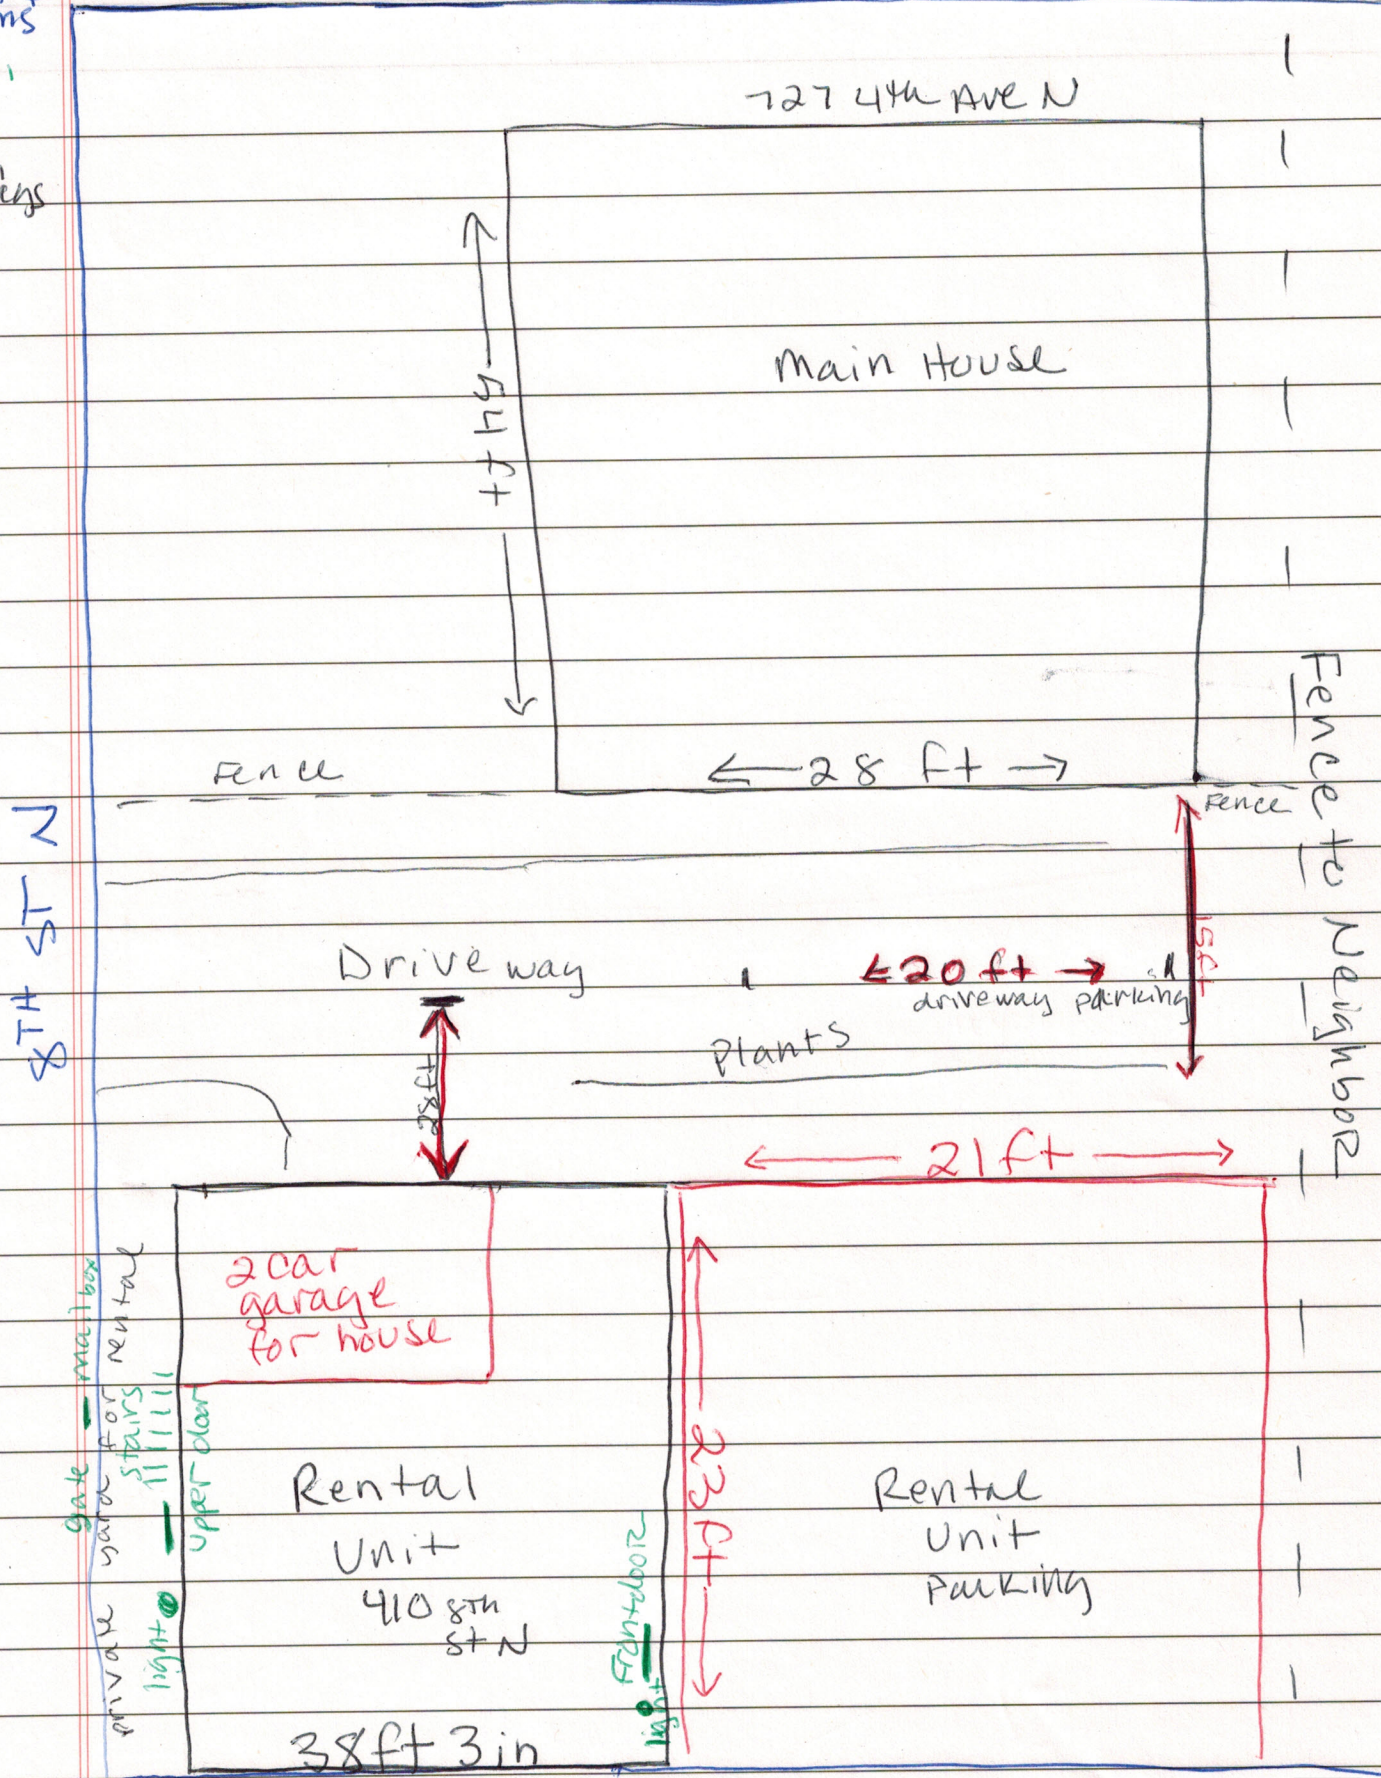 727 4th Ave N
Main House
Fence
← 28 ft →
Fence
Fence to Neighbor
8TH ST N
Driveway
← 20 ft →
driveway parking
15ft
28ft
Plants
← 21 ft →
2 car
garage
for house
gate
mailbox
private yard for rental
stairs
upper door
light
Rental
Unit
410 8th
St N
Frontdoor
light
← 23 ft →
Rental
Unit
Parking
38ft 3in